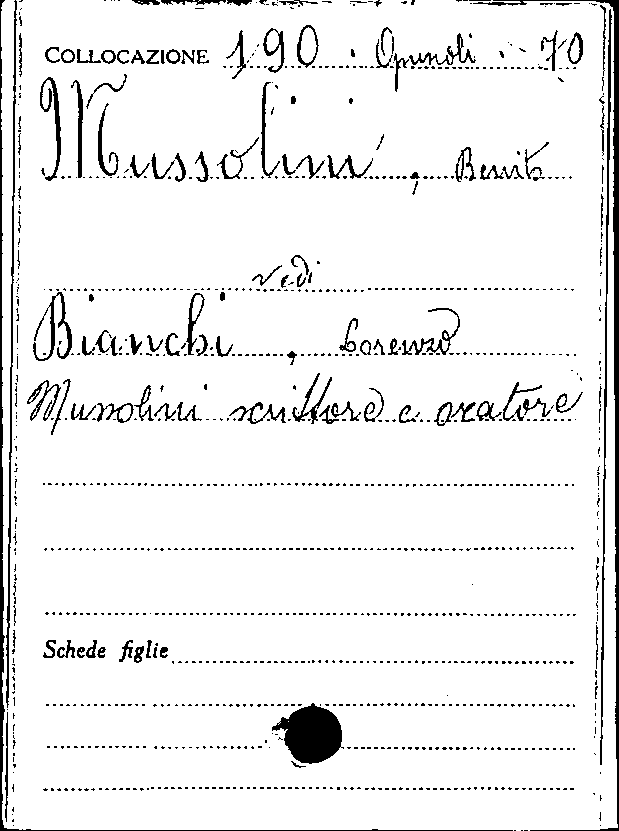 COLLOCAZIONE 190 . Opuscoli . 70
Mussolini , Benito
vedi
Bianchi , Lorenzo
Mussolini scrittore e oratore
Schede figlie